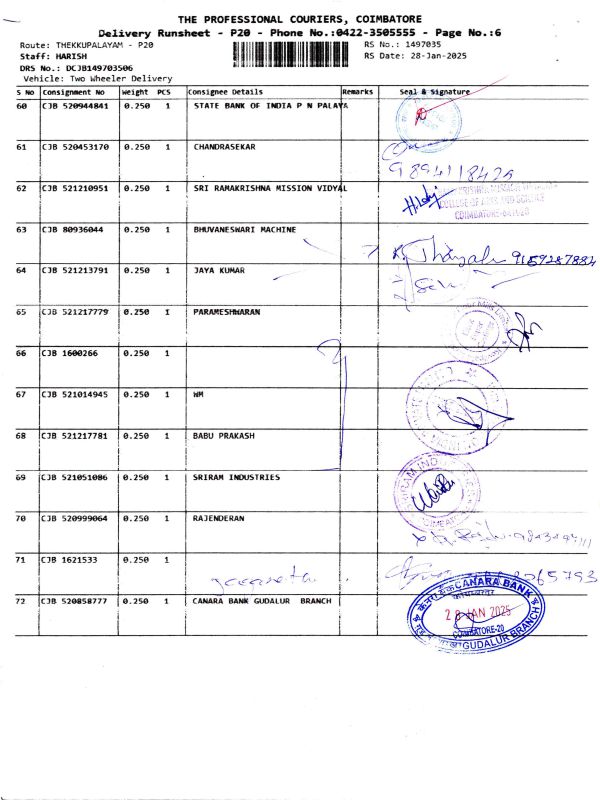 THE PROFESSIONAL COURIERS, COIMBATORE
Delivery Runsheet - P20 - Phone No.:0422-3505555 - Page No.:6
Route: THEKKUPALAYAM - P20 RS No.: 1497035
Staff: HARISH RS Date: 28-Jan-2025
DRS No.: DCJB149703506
Vehicle: Two Wheeler Delivery
S No Consignment No Weight PCS Consignee Details Remarks Seal & Signature
60 CJB 520944841 0.250 1 STATE BANK OF INDIA P N PALAYA
61 CJB 520453170 0.250 1 CHANDRASEKAR
9894118425
62 CJB 521210951 0.250 1 SRI RAMAKRISHNA MISSION VIDYAL
COLLEGE OF ARTS AND SCIENCE
63 CJB 80936044 0.250 1 BHUVANESWARI MACHINE
9159287884
64 CJB 521213791 0.250 1 JAYA KUMAR
65 CJB 521217779 0.250 1 PARAMESHWARAN
66 CJB 1600266 0.250 1
67 CJB 521014945 0.250 1 WM
68 CJB 521217781 0.250 1 BABU PRAKASH
69 CJB 521051086 0.250 1 SRIRAM INDUSTRIES
70 CJB 520999064 0.250 1 RAJENDERAN
71 CJB 1621533 0.250 1
72 CJB 520858777 0.250 1 CANARA BANK GUDALUR BRANCH
CANARA BANK
28 JAN 2025
COIMBATORE-20
GUDALUR BRANCH